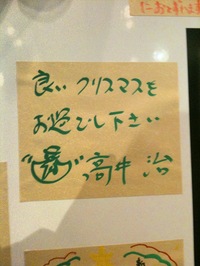 良いクリスマスを
お過ごし下さい
高井 治